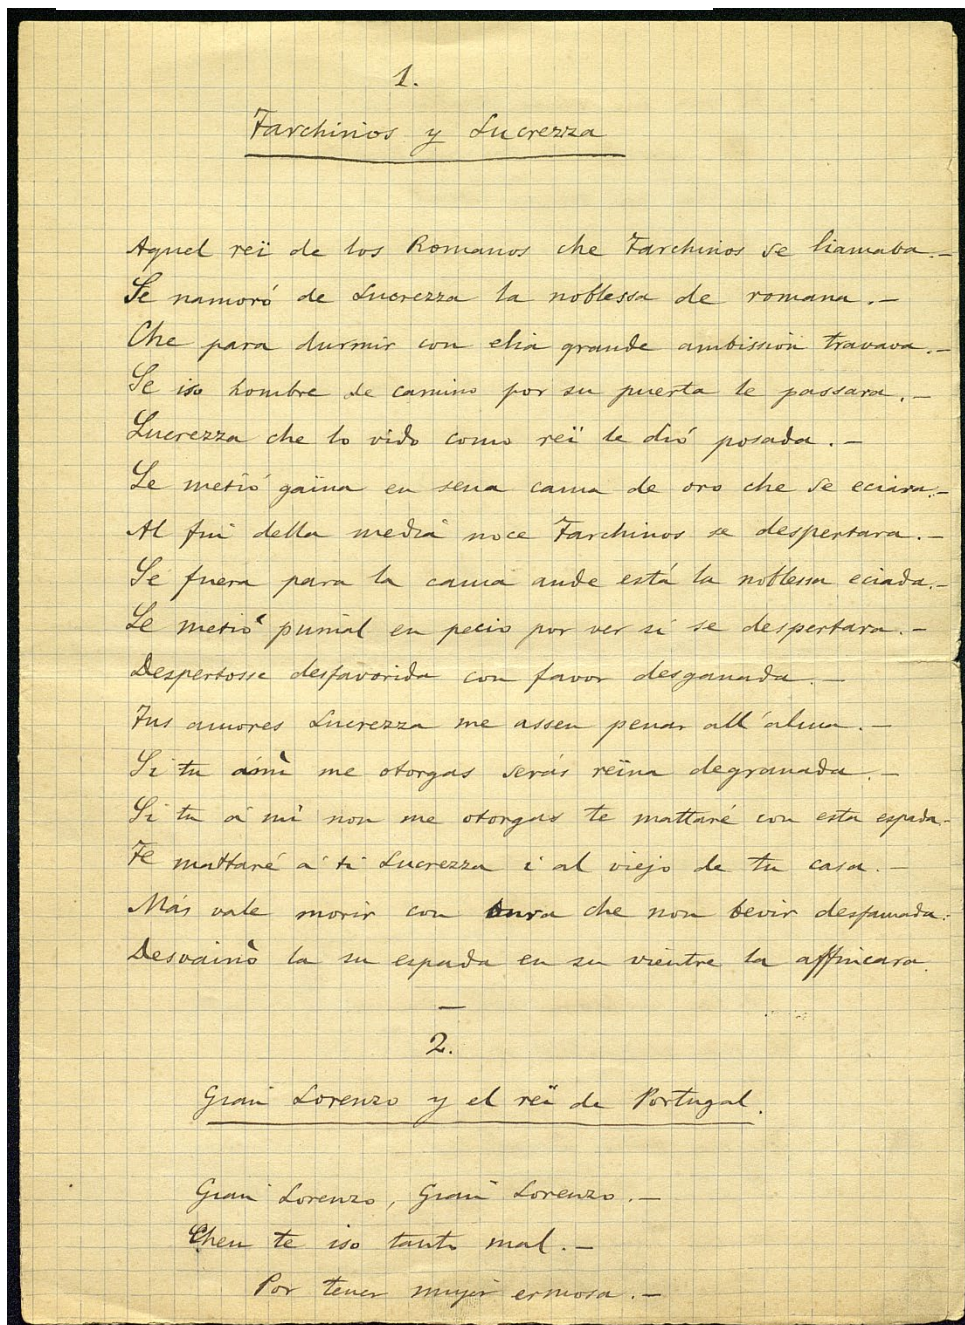 1.
Tarchinios y Lucrezza
Aquel reï de los Romanos che Tarchinos se liamaba.–
Se namoró de Lucrezza la noblessa de romana.–
Che para durmir con elia grande ambission travava.–
Se iso hombre de camino por su puerta le passara.–
Lucrezza che lo vido como reï le dió posada.–
Le metió gaina en sena cama de oro che se eciara.–
Al fin della media noce Tarchinos se despertara.–
Se fuera para la cama ande está la noblessa eciada.–
Le metió puñal en pecio por ver si se despertara.–
Despertosse desfavorida con favor desganada.–
Tus amores Lucrezza me assen penar all'alma.–
Si tu ámì me otorgas serás reïna degranada.–
Si tu á mì non me otorgas te mattaré con esta espada.–
Te mattaré á ti Lucrezza i al viejo de tu casa.–
Más vale morir con onra che non bevir desfamada.–
Desvainò la su espada en su vientre la affincara.
–
2.
Gian Lorenzo y el reï de Portugal.
Gian Lorenzo, Gian Lorenzo.–
Chen te iso tanto mal.–
Por tener mujer ermosa.–